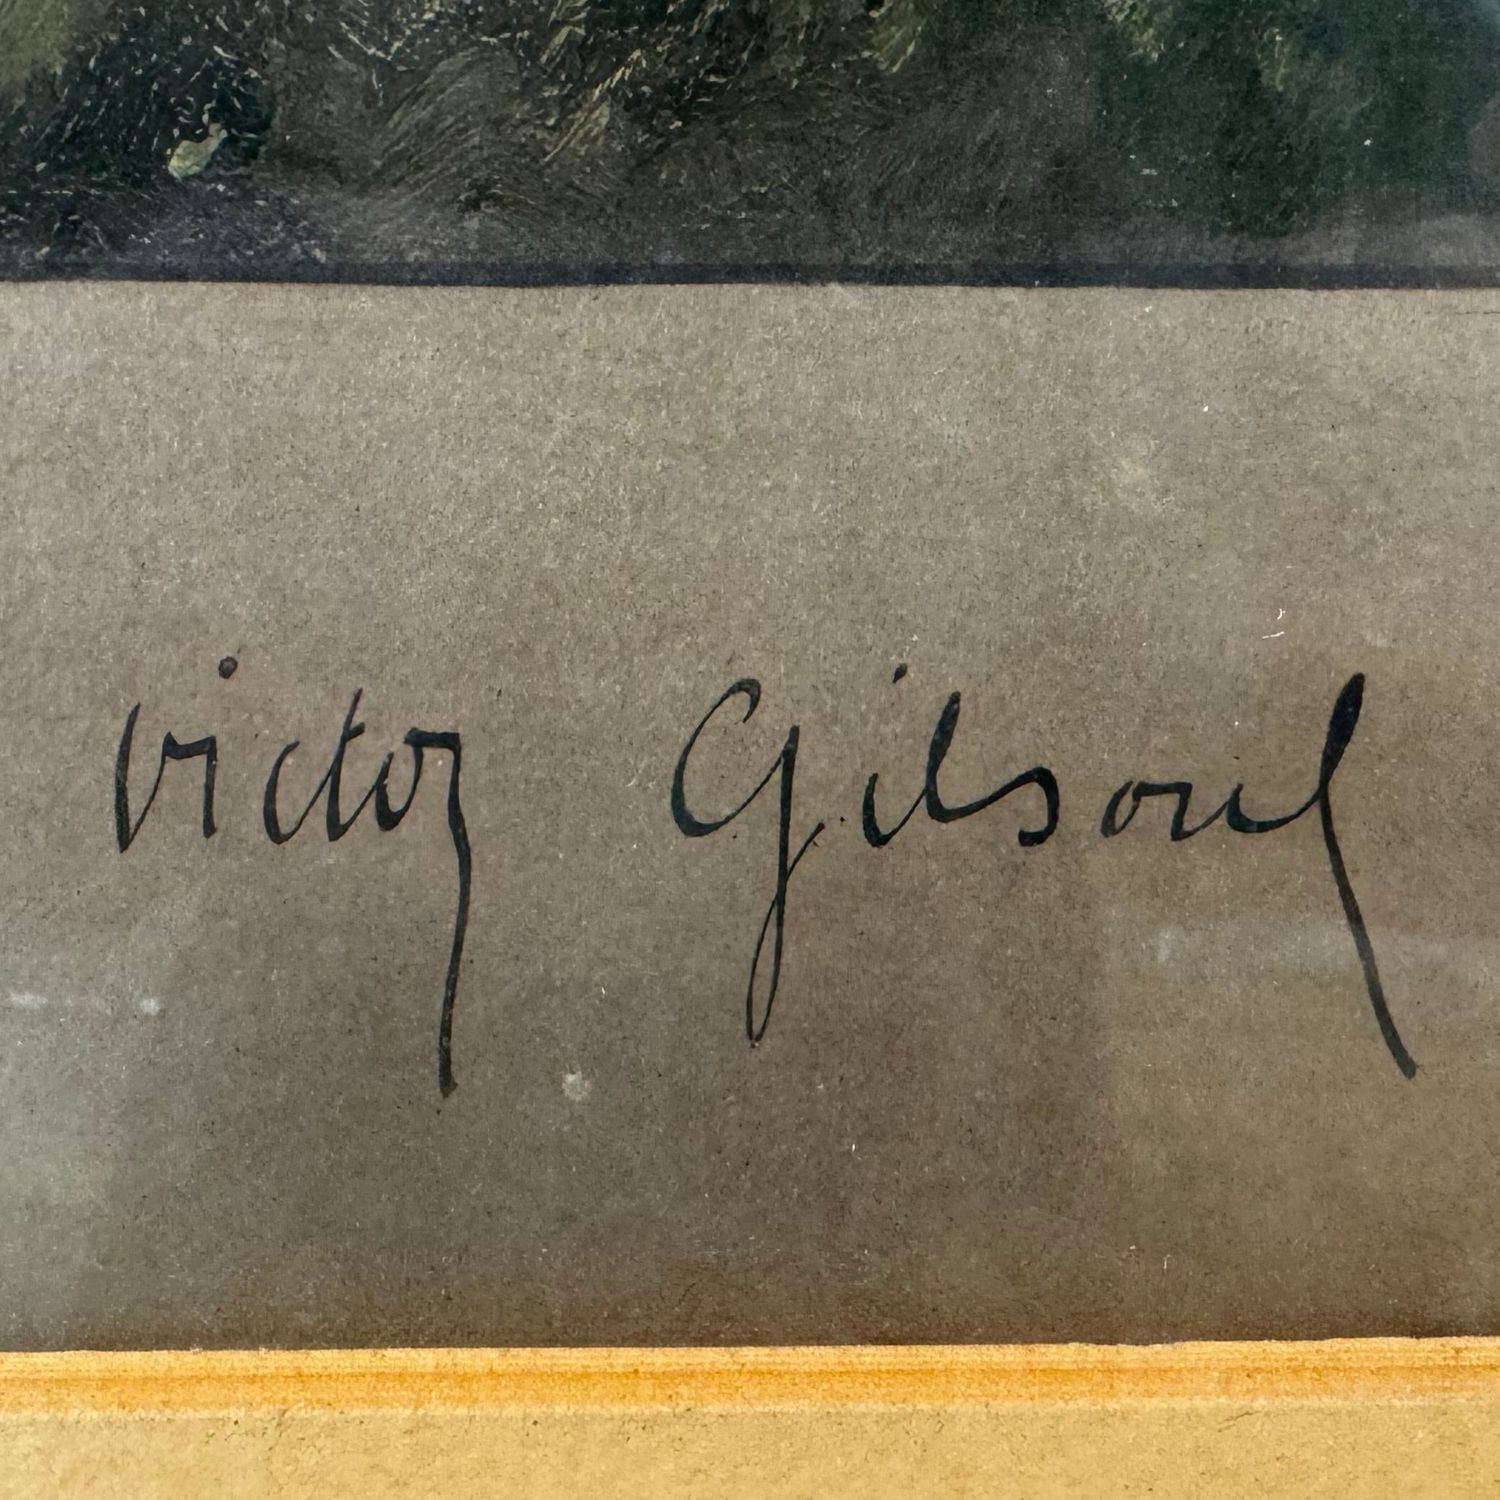 Victor Gilsoul